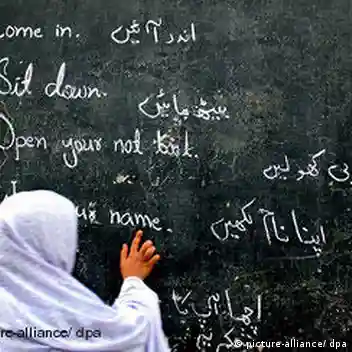 ome in. اندر آئیں
Sit down. بیٹھ جائیں
Open your not book.
پی کھولیں
ur name.
اپنا نام لکھیں
اچھا اپی کا
re-alliance/ dpa
© picture-alliance/ dpa